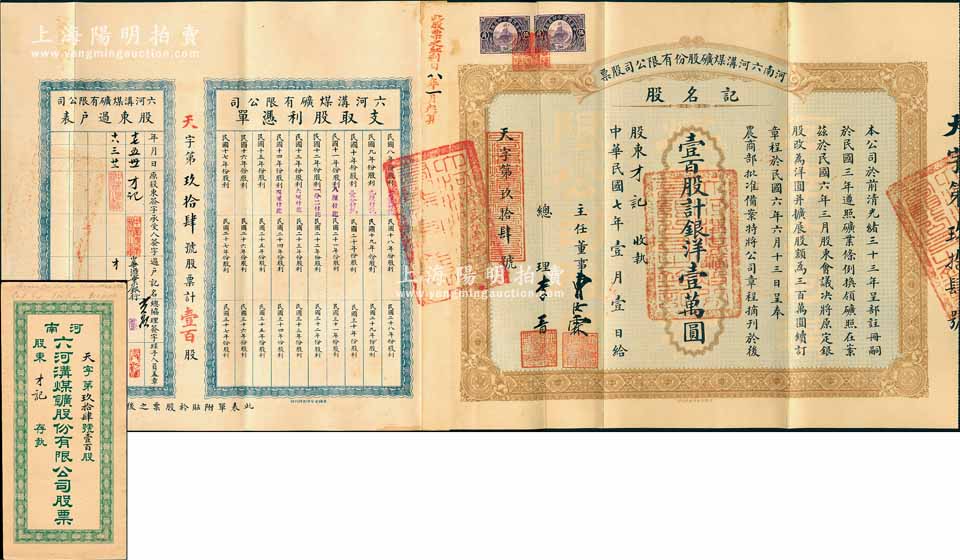 上海陽明拍賣
yangmingauction.com
上海陽明拍賣
www.yangmingauction.com
河南六河溝煤礦股份有限公司股票
記名股
本公司於前清光緒三十三年呈部註冊嗣
於民國三年遵照礦業條例換領礦照在案
茲於民國六年三月股東會議決將原定銀
股改為洋圓并擴展股額為三百萬圓續訂
章程於民國六年六月十三日呈奉
農商部批准備案特將公司章程摘刊於後
壹百股計銀洋壹萬圓
股東才記 收執
中華民國七年壹月壹日給
主任董事
總理
天字第玖拾肆號
天字第玖拾肆號
六河溝煤礦有限公司
支取股利憑單
民國八年份股利
民國九年份股利
民國十年份股利
民國十一年份股利
民國十二年份股利
民國十三年份股利
民國十四年份股利
民國十五年份股利
民國十六年份股利
民國十七年份股利
民國十八年份股利
民國十九年份股利
民國二十年份股利
民國二十一年份股利
民國二十二年份股利
民國二十三年份股利
民國二十四年份股利
民國二十五年份股利
民國二十六年份股利
民國二十七年份股利
民國二十八年份股利
民國二十九年份股利
民國三十年份股利
民國三十一年份股利
民國三十二年份股利
民國三十三年份股利
民國三十四年份股利
民國三十五年份股利
民國三十六年份股利
民國三十七年份股利
天字第玖拾肆號股票計壹百股
六河溝煤礦有限公司
股東過戶表
年月日
原股東簽字
承受人簽字
過戶記名
總協理簽字
經手人員蓋章
才記
此表單附貼於股票之後
河南
六河溝煤礦股份有限公司股票
天字第玖拾肆號壹百股
股東 才記 存執